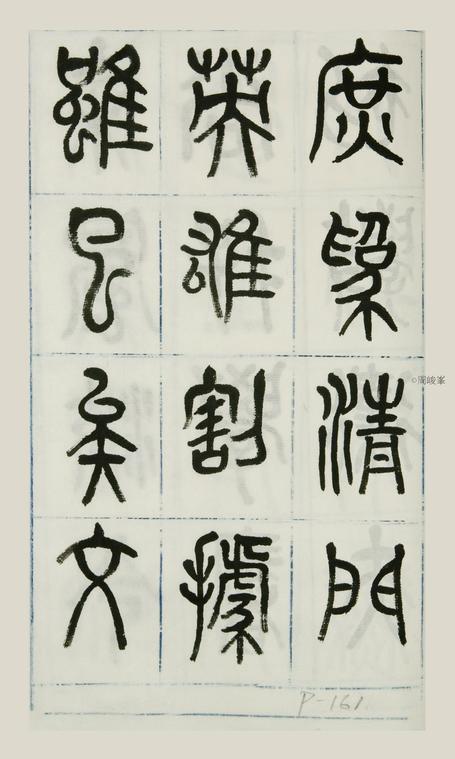 庶為清門
英雄割據
雖已矣文
©周峻峯
P-161